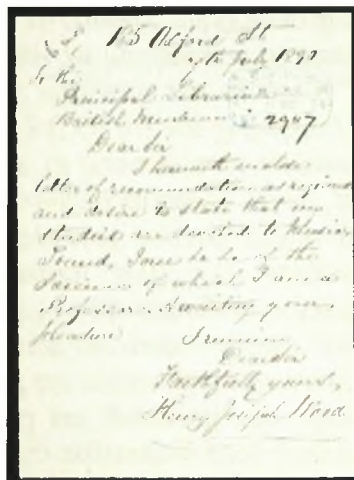 185 Oxford St
7th July 1890
To the
Principal Librarian
British Museum 2907
Dear Sir
I herewith enclose
letter of recommendation as required
and desire to state that my
studies are devoted to Music,
Sound, &c of the
Sciences of which I am a
Professor. Awaiting your
pleasure
I remain
Dear Sir
Faithfully yours,
Henry Joseph Ward